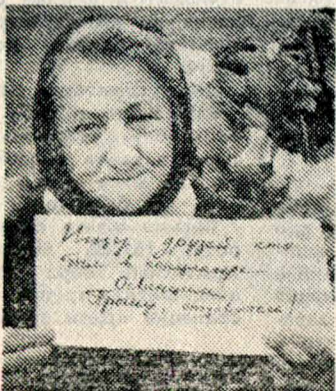 Ищу друзей, кто
был в концлагере
Освенцим.
Прошу, отзовитесь!